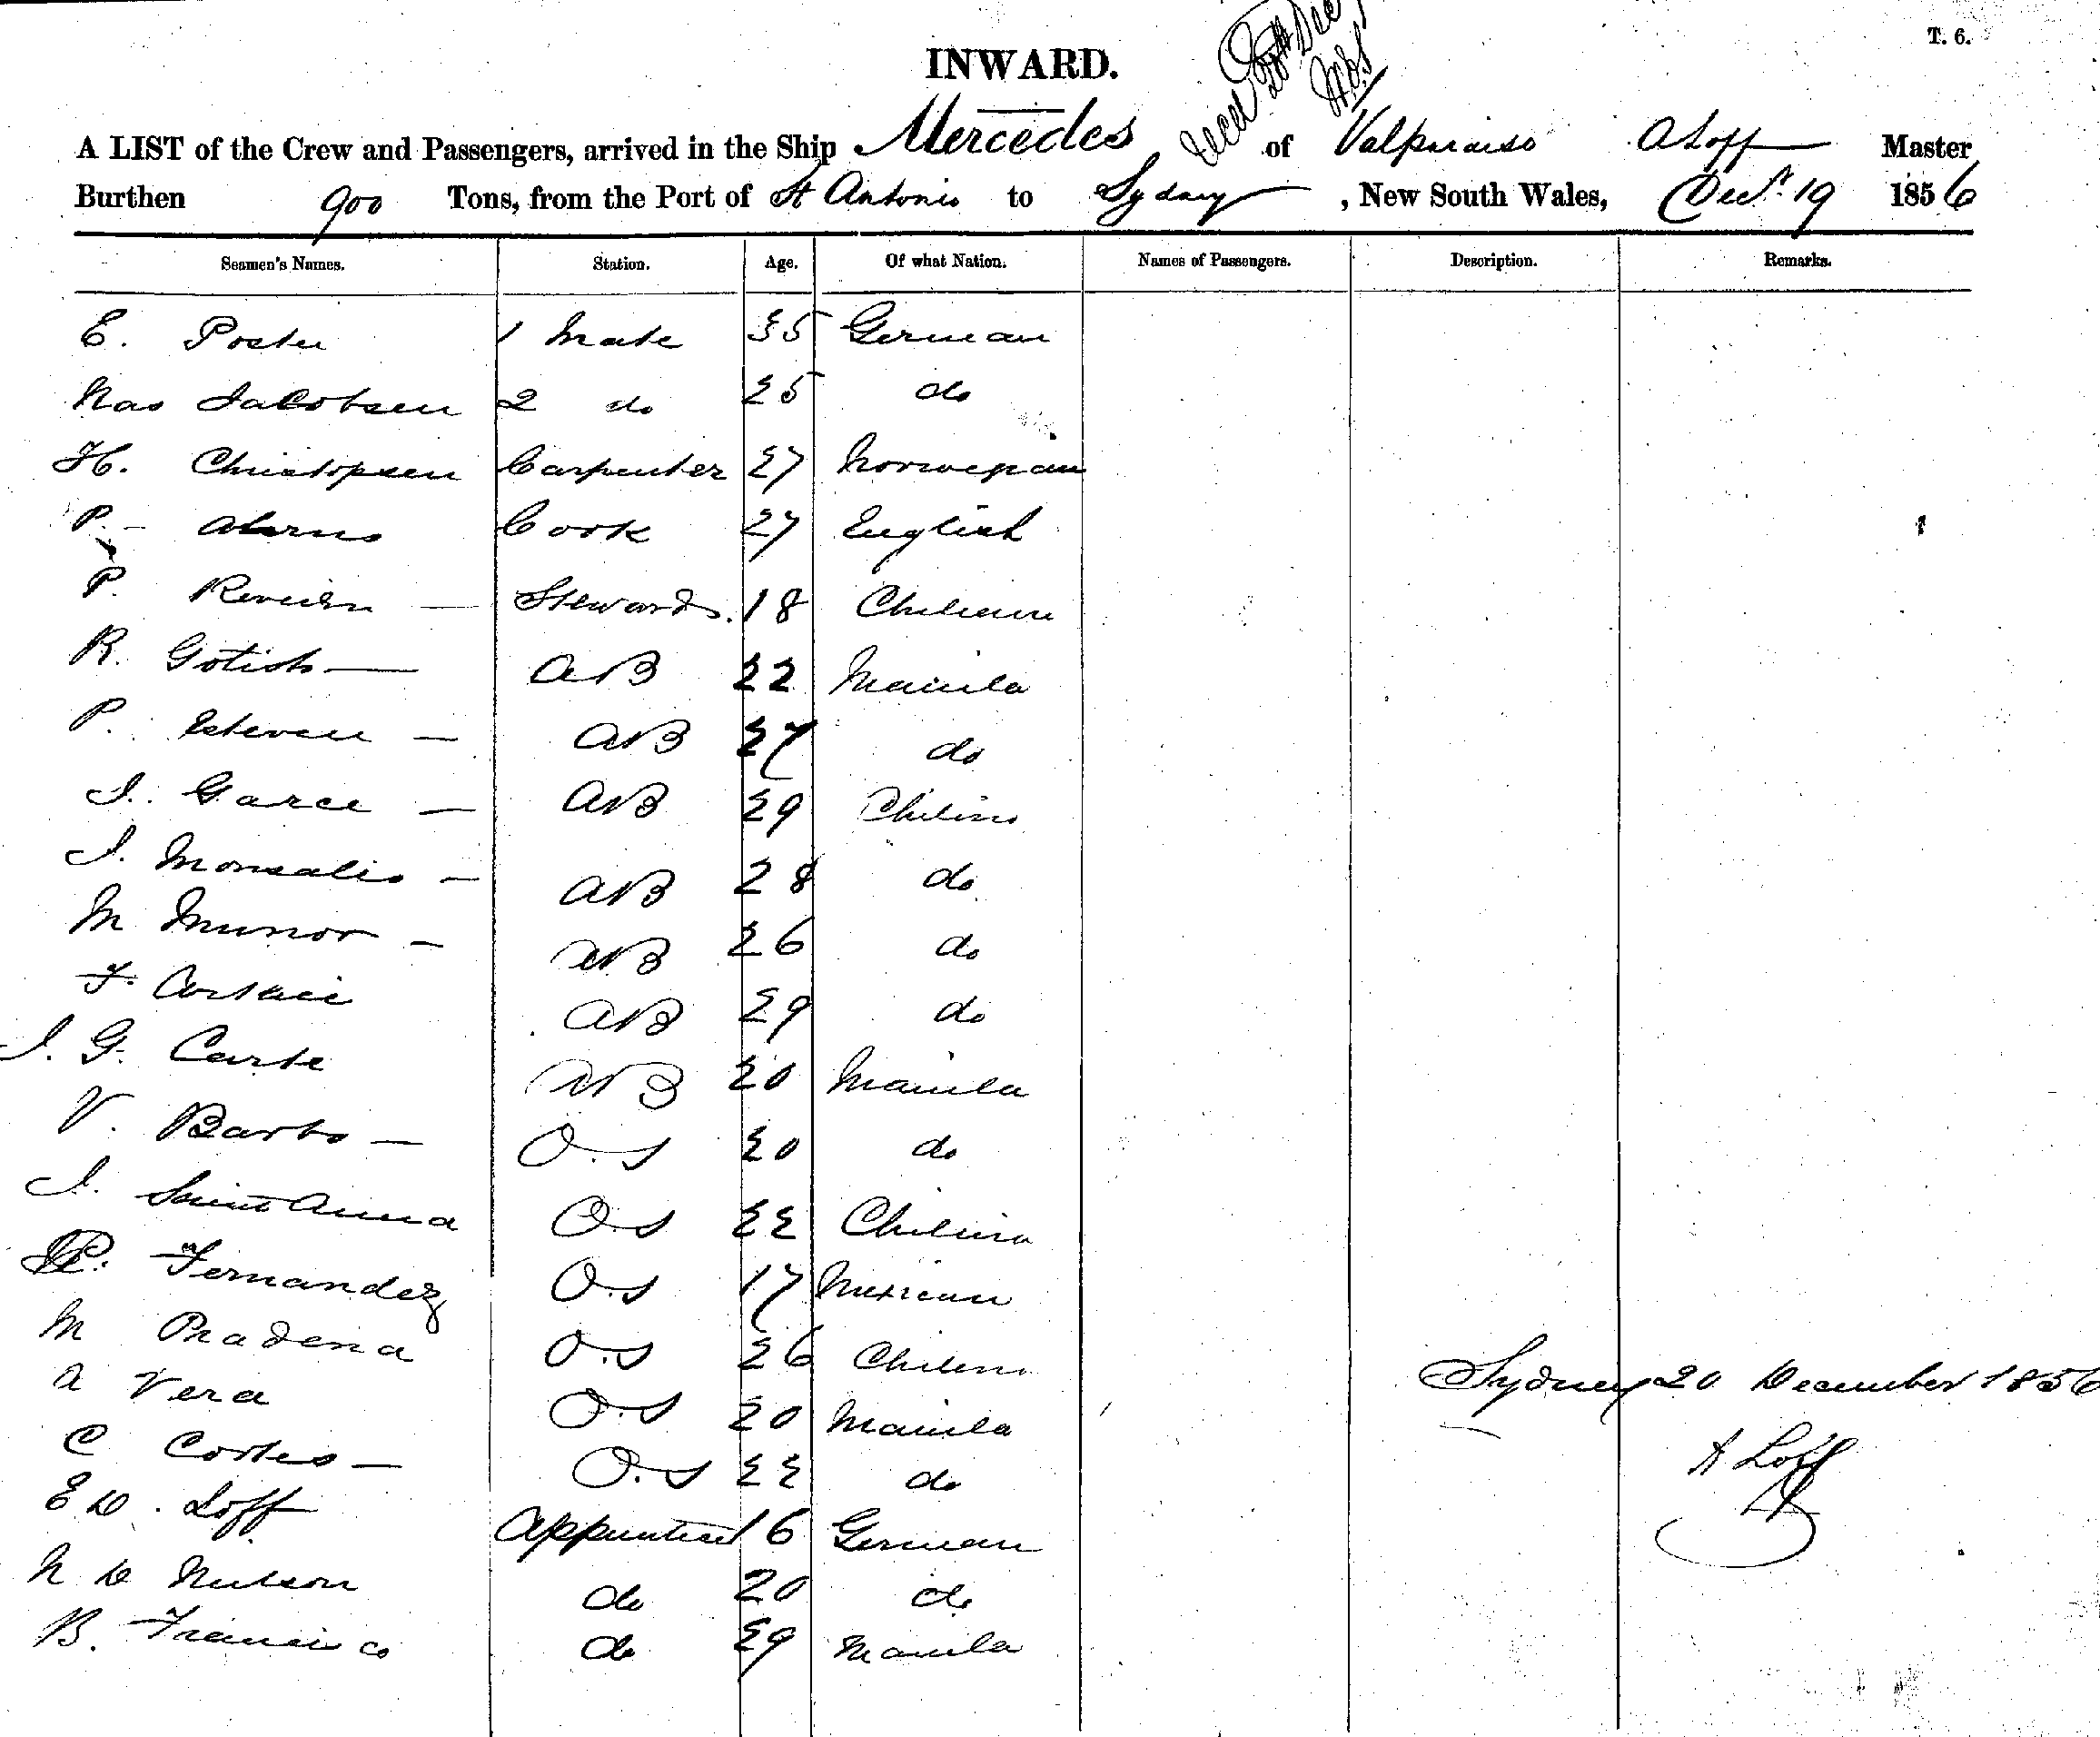 T. 6.
INWARD.
A LIST of the Crew and Passengers, arrived in the Ship Mercedes of Valparaiso A Loff Master
Burthen 900 Tons, from the Port of St Antonio to Sydney, New South Wales, Decr 19 1856
Seamen's Names. Station. Age. Of what Nation. Names of Passengers. Description. Remarks.
E. 1 Mate 35 German
Jacobsen 2 do 25 do
H. Christopsen Carpenter 27 Norwegian
P. Ahrns Cook 27 English
P. Steward. 18 Chilian
R. AB 22 Manila
P. Esteven AB 27 do
I. Garce AB 29 Chilino
I. Monsalis AB 28 do
M Munor AB 26 do
F. AB 29 do
I. G. Carte AB 20 Manila
V. Barbo O.S 20 do
I. Saint Anna O.S 22 Chilino
P. Fernandez O.S 17 Mexican
M Pradena O.S 26 Chileno
A Vera O.S 20 Manila
C Cortes O.S 22 do
E D. Loff Apprentice 16 German
N D Nielson do 20 do
B. Francisco do 29 Manila
Sydney 20 December 1856
A Loff